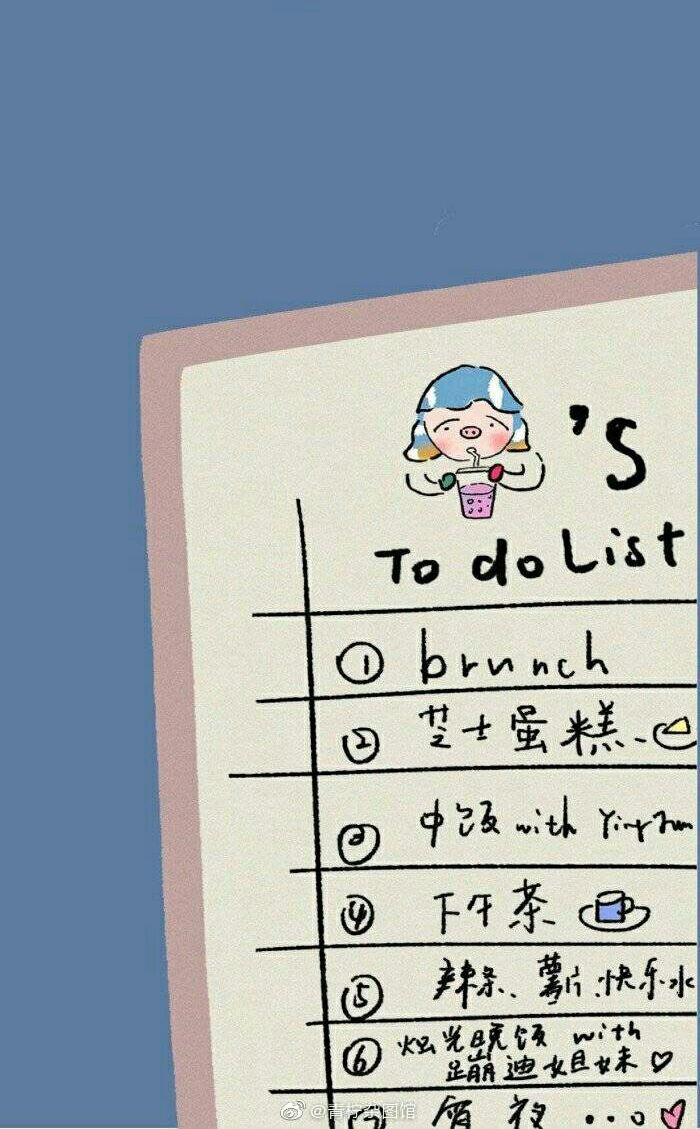 's
To do List
① brunch
② 芝士蛋糕、
③ 中饭 with
④ 下午茶
⑤ 辣条、薯片、快乐水
⑥ 烛光晚饭 with
蹦迪姐妹♡
宵夜...
@青柠杂图馆